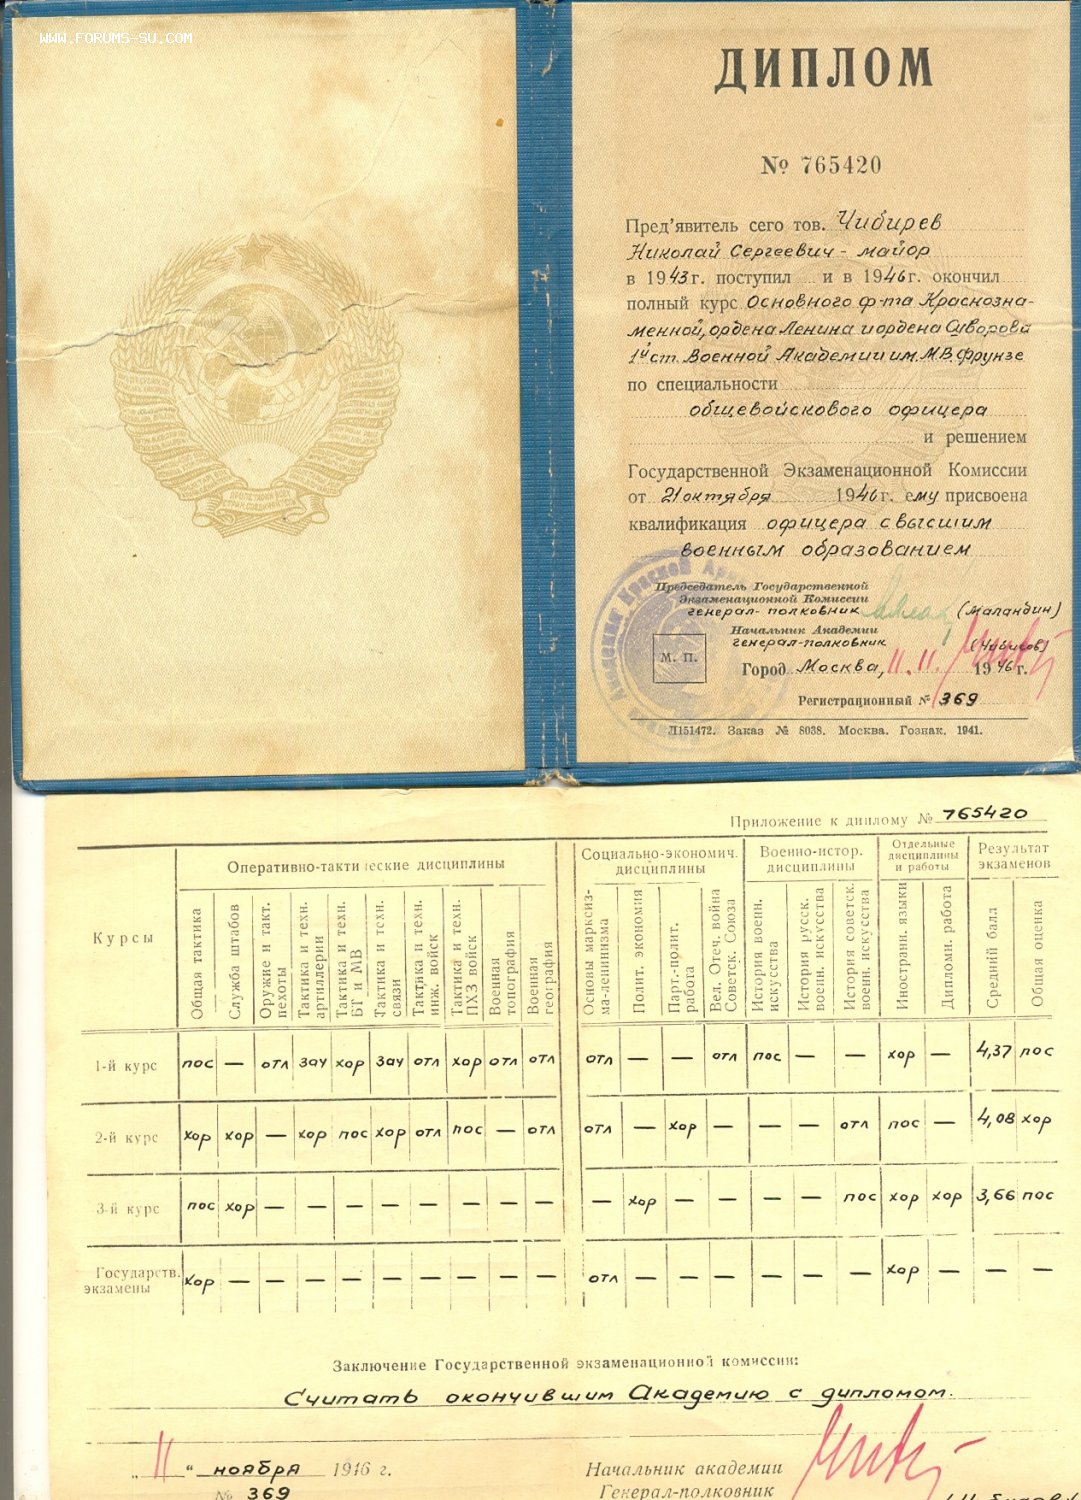 WWW.FORUMS-SU.COM
ДИПЛОМ
№ 765420
Пред'явитель сего тов. Чибирев
Николай Сергеевич - майор
в 1943 г. поступил и в 1946 г. окончил
полный курс Основного ф-та Краснозна-
менной, ордена Ленина и ордена Суворова
1й ст. Военной Академии им. М.В. Фрунзе
по специальности
общевойскового офицера
и решением
Государственной Экзаменационной Комиссии
от 21 октября 1946 г. ему присвоена
квалификация офицера с высшим
военным образованием
Председатель Государственной
Экзаменационной Комиссии
генерал-полковник (Маландин)
Начальник Академии
генерал-полковник (Чибисов)
М. П.
Город Москва, 11.11. 1946 г.
Регистрационный № 369
Л151472. Заказ № 8038. Москва. Гознак. 1941.
Приложение к диплому № 765420
Курсы
Оперативно-тактические дисциплины
Социально-экономич. дисциплины
Военно-истор. дисциплины
Отдельные дисциплины и работы
Результат экзаменов
Общая тактика
Служба штабов
Оружие и такт. пехоты
Тактика и техн. артиллерии
Тактика и техн. БТ и МВ
Тактика и техн. связи
Тактика и техн. инж. войск
Тактика и техн. ПХЗ войск
Военная топография
Военная география
Основы марксиз-ма-ленинизма
Полит. экономия
Парт.-полит. работа
Вел. Отеч. война Советск. Союза
История военн. искусства
История русск. военн. искусства
История советск. военн. искусства
Иностранн. языки
Дипломн. работа
Средний балл
Общая оценка
1-й курс пос — отл зач хор зач отл хор отл отл отл — — отл пос — — хор — 4,37 пос
2-й курс хор хор — хор пос хор отл пос — отл отл — хор — — — отл пос — 4,08 хор
3-й курс пос хор — — — — — — — — — хор — — — — пос хор хор 3,66 пос
Государств. экзамены хор — — — — — — — — — отл — — — — — — хор — — —
Заключение Государственной экзаменационной комиссии:
Считать окончившим Академию с дипломом.
„11“ ноября 1946 г.
Начальник академии
№ 369
Генерал-полковник